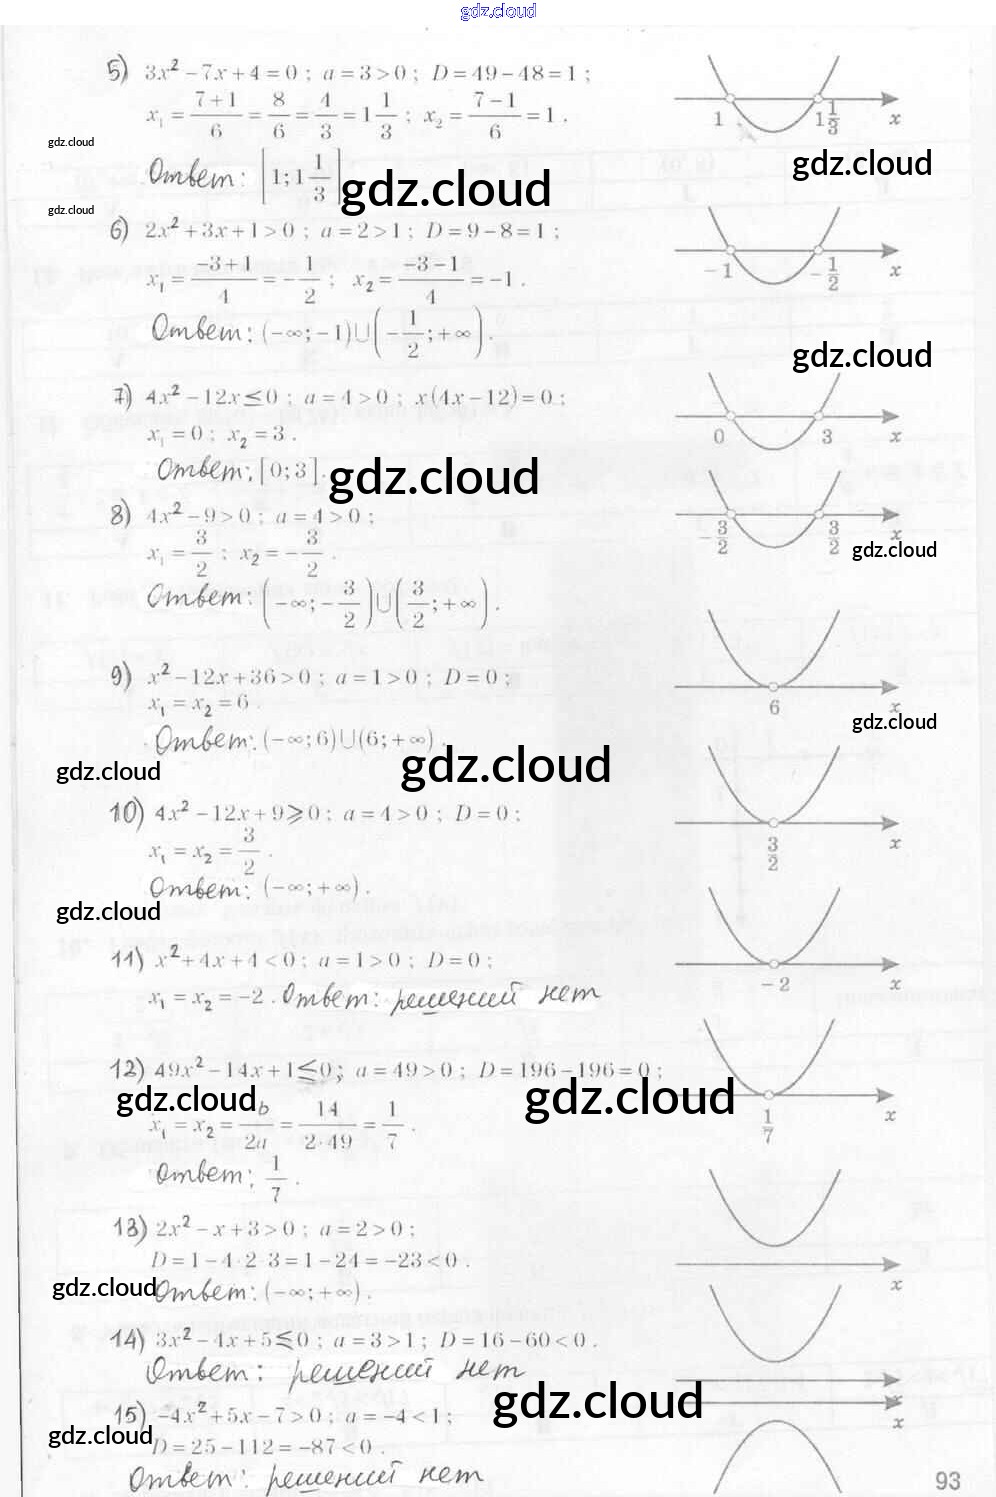 gdz.cloud
5) 3x² − 7x + 4 = 0 ; a = 3 > 0 ; D = 49 − 48 = 1 ;
x₁ = (7 + 1)/6 = 8/6 = 4/3 = 1 1/3 ; x₂ = (7 − 1)/6 = 1 .
1 1 1/3 x
gdz.cloud
gdz.cloud
Ответ: [1; 1 1/3]
gdz.cloud
gdz.cloud
6) 2x² + 3x + 1 > 0 ; a = 2 > 1 ; D = 9 − 8 = 1 ;
x₁ = (−3 + 1)/4 = −1/2 ; x₂ = (−3 − 1)/4 = −1 .
−1 −1/2 x
Ответ: (−∞; −1)∪(−1/2; +∞) .
gdz.cloud
7) 4x² − 12x ≤ 0 ; a = 4 > 0 ; x(4x − 12) = 0 ;
x₁ = 0 ; x₂ = 3 .
0 3 x
Ответ: [0; 3].
gdz.cloud
8) 4x² − 9 > 0 ; a = 4 > 0 ;
x₁ = 3/2 ; x₂ = −3/2 .
−3/2 3/2 x
gdz.cloud
Ответ: (−∞; −3/2)∪(3/2; +∞) .
9) x² − 12x + 36 > 0 ; a = 1 > 0 ; D = 0 ;
x₁ = x₂ = 6 .
6 x
gdz.cloud
Ответ: (−∞; 6)∪(6; +∞) .
gdz.cloud
gdz.cloud
10) 4x² − 12x + 9 ⩾ 0 ; a = 4 > 0 ; D = 0 ;
x₁ = x₂ = 3/2 .
3/2 x
Ответ: (−∞; +∞) .
gdz.cloud
11) x² + 4x + 4 < 0 ; a = 1 > 0 ; D = 0 ;
x₁ = x₂ = −2 . Ответ: решений нет
−2 x
12) 49x² − 14x + 1 ≤ 0 ; a = 49 > 0 ; D = 196 − 196 = 0 ;
gdz.cloud
gdz.cloud
x₁ = x₂ = b/2a = 14/(2·49) = 1/7 .
1/7 x
Ответ: 1/7 .
13) 2x² − x + 3 > 0 ; a = 2 > 0 ;
D = 1 − 4·2·3 = 1 − 24 = −23 < 0 .
x
gdz.cloud
Ответ: (−∞; +∞) .
14) 3x² − 4x + 5 ≤ 0 ; a = 3 > 1 ; D = 16 − 60 < 0 .
Ответ: решений нет
x
gdz.cloud
15) −4x² + 5x − 7 > 0 ; a = −4 < 1 ;
x
gdz.cloud
D = 25 − 112 = −87 < 0 .
Ответ: решений нет
93